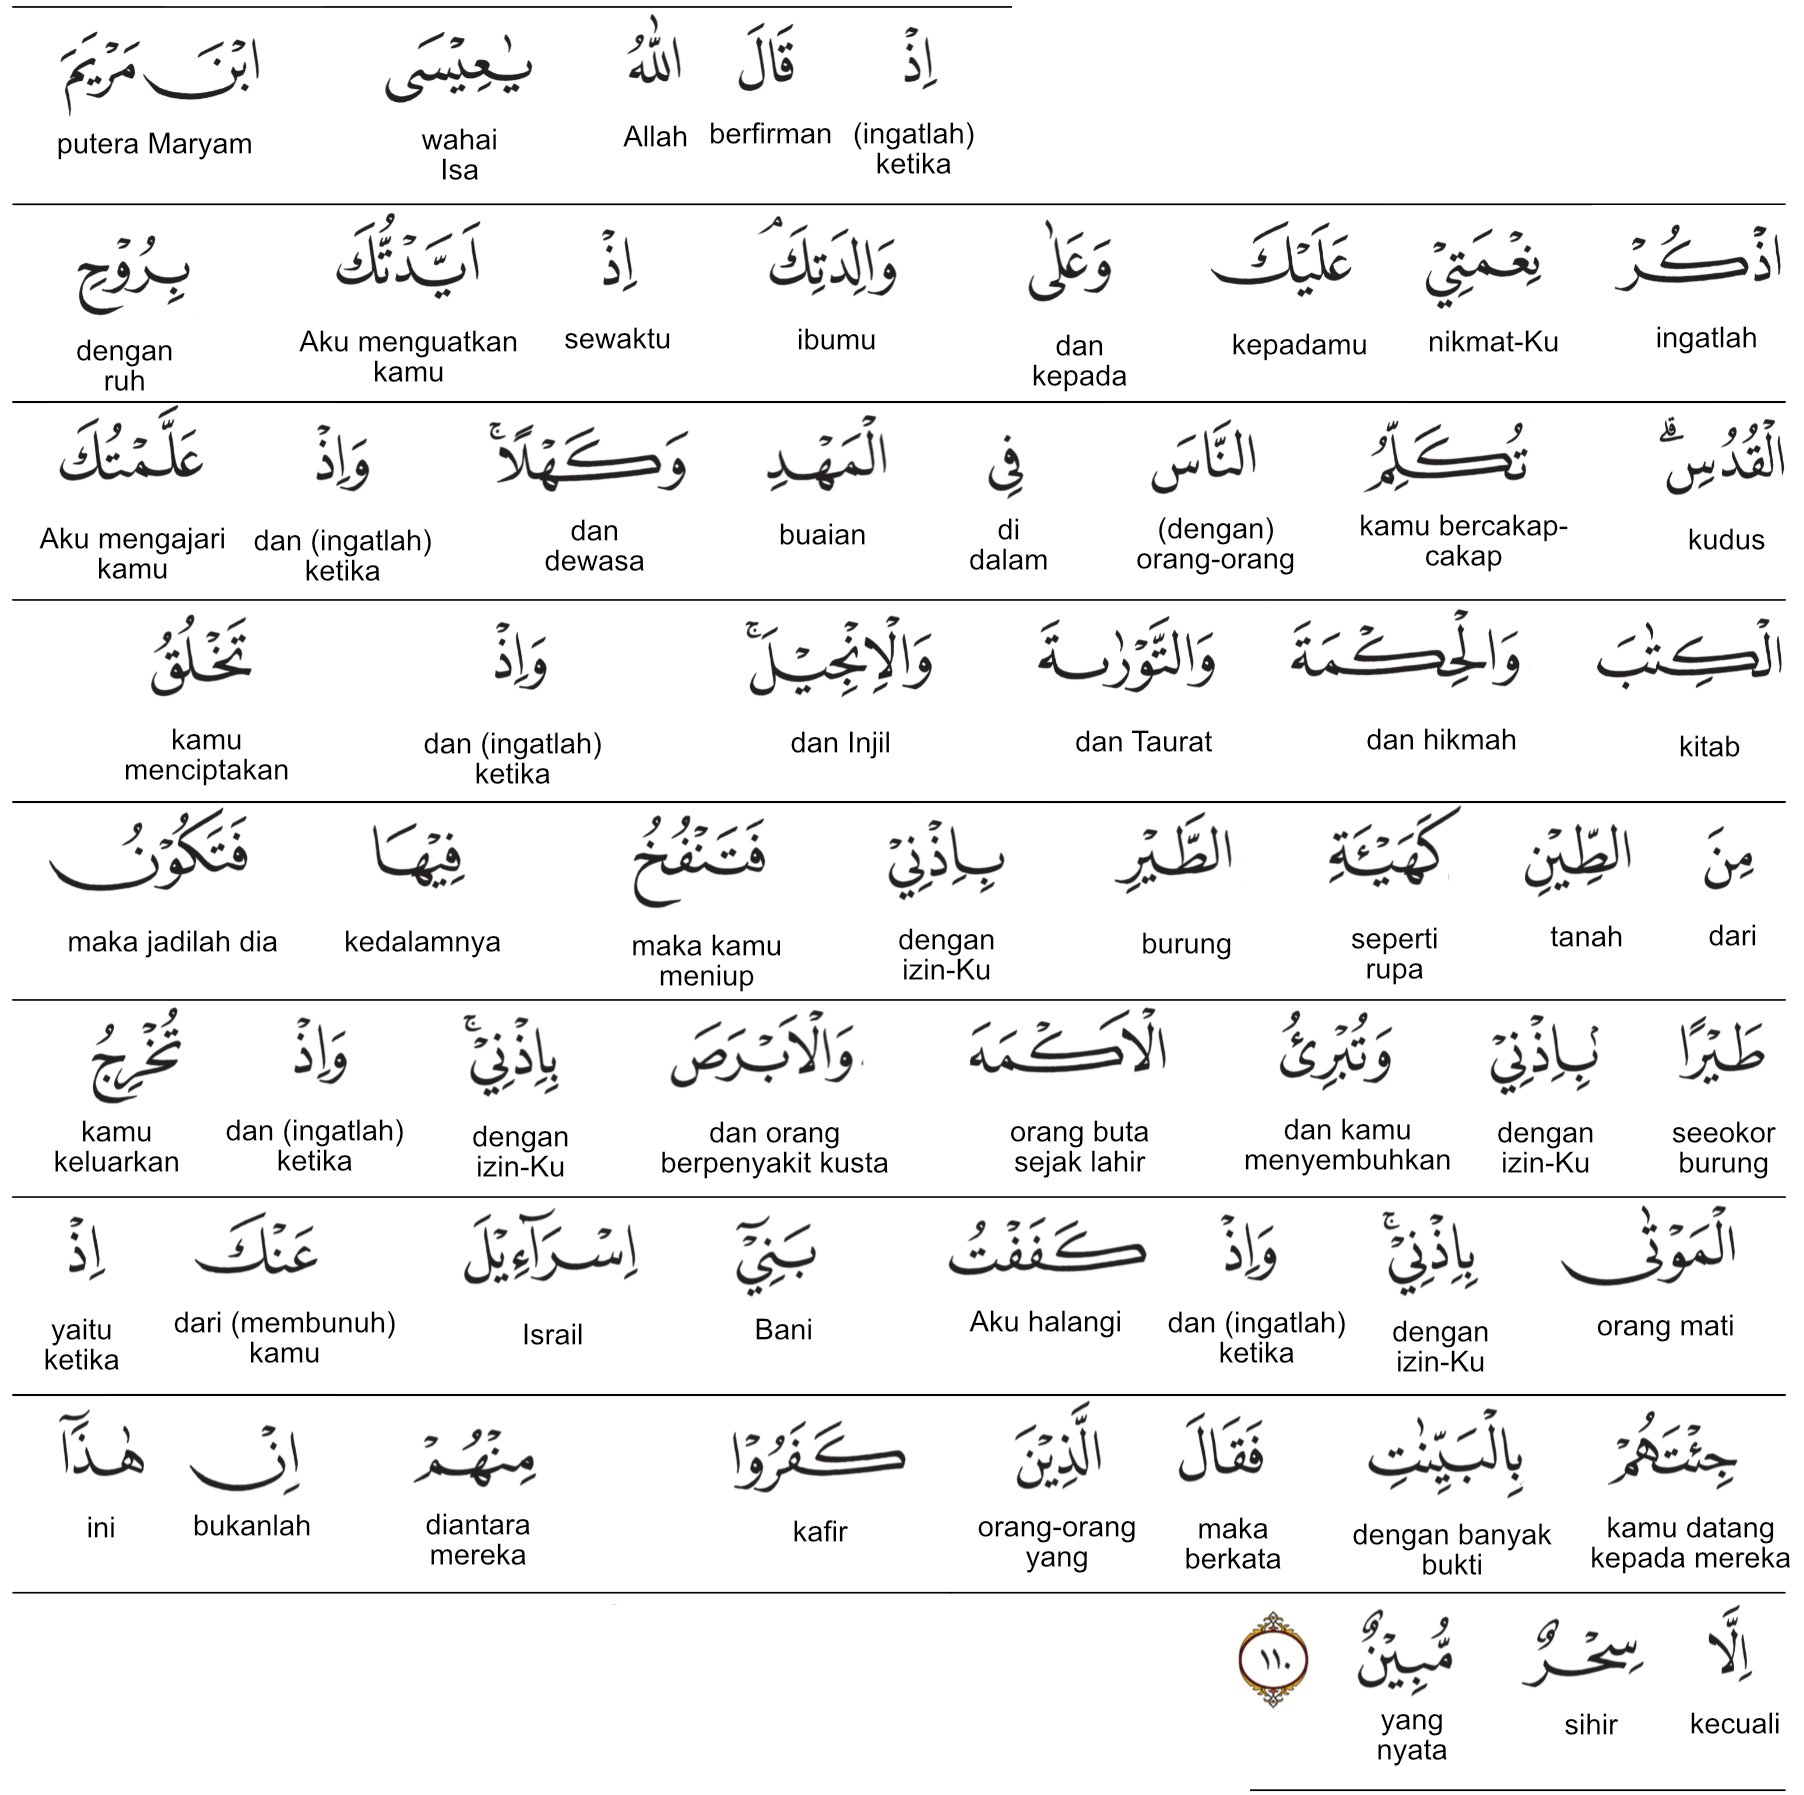 اِذْ قَالَ اللّٰهُ يٰعِيْسَى ابْنَ مَرْيَمَ
(ingatlah) ketika berfirman Allah wahai Isa putera Maryam
اذْكُرْ نِعْمَتِيْ عَلَيْكَ وَعَلٰى وَالِدَتِكَ ۘ اِذْ اَيَّدْتُّكَ بِرُوْحِ
ingatlah nikmat-Ku kepadamu dan kepada ibumu sewaktu Aku menguatkan kamu dengan ruh
الْقُدُسِۗ تُكَلِّمُ النَّاسَ فِى الْمَهْدِ وَكَهْلًاۚ وَاِذْ عَلَّمْتُكَ
kudus kamu bercakap-cakap (dengan) orang-orang di dalam buaian dan dewasa dan (ingatlah) ketika Aku mengajari kamu
الْكِتٰبَ وَالْحِكْمَةَ وَالتَّوْرٰىةَ وَالْاِنْجِيْلَۚ وَاِذْ تَخْلُقُ
kitab dan hikmah dan Taurat dan Injil dan (ingatlah) ketika kamu menciptakan
مِنَ الطِّيْنِ كَهَيْـَٔةِ الطَّيْرِ بِاِذْنِيْ فَتَنْفُخُ فِيْهَا فَتَكُوْنُ
dari tanah seperti rupa burung dengan izin-Ku maka kamu meniup kedalamnya maka jadilah dia
طَيْرًا بِاِذْنِيْ وَتُبْرِئُ الْاَكْمَهَ وَالْاَبْرَصَ بِاِذْنِيْۚ وَاِذْ تُخْرِجُ
seeokor burung dengan izin-Ku dan kamu menyembuhkan orang buta sejak lahir dan orang berpenyakit kusta dengan izin-Ku dan (ingatlah) ketika kamu keluarkan
الْمَوْتٰى بِاِذْنِيْۚ وَاِذْ كَفَفْتُ بَنِيْٓ اِسْرَاۤءِيْلَ عَنْكَ اِذْ
orang mati dengan izin-Ku dan (ingatlah) ketika Aku halangi Bani Israil dari (membunuh) kamu yaitu ketika
جِئْتَهُمْ بِالْبَيِّنٰتِ فَقَالَ الَّذِيْنَ كَفَرُوْا مِنْهُمْ اِنْ هٰذَآ
kamu datang kepada mereka dengan banyak bukti maka berkata orang-orang yang kafir diantara mereka bukanlah ini
اِلَّا سِحْرٌ مُّبِيْنٌ ١١٠
kecuali sihir yang nyata